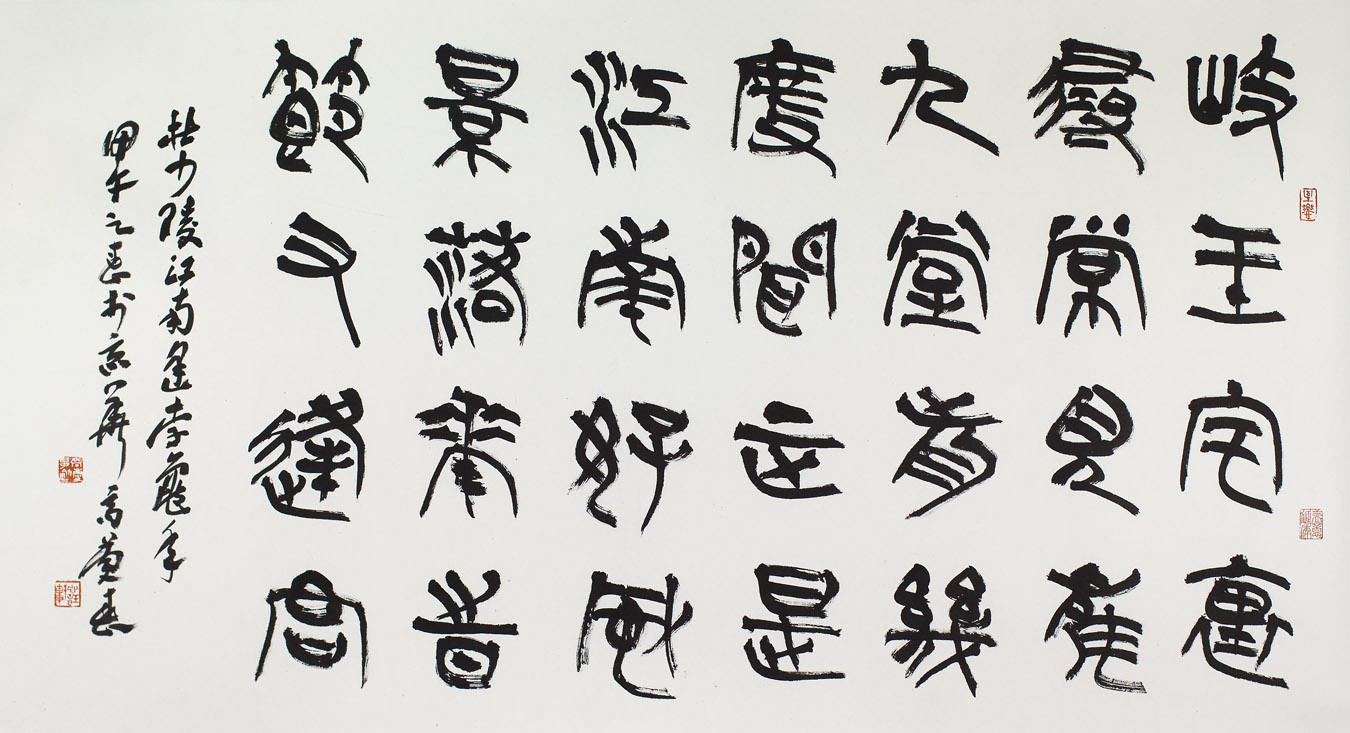 岐王宅裏
尋常見崔
九堂前幾
度聞正是
江南好風
景落華旹
節又逢君
杜少陵江南逢李龜年
甲午之春於京華 高慶春